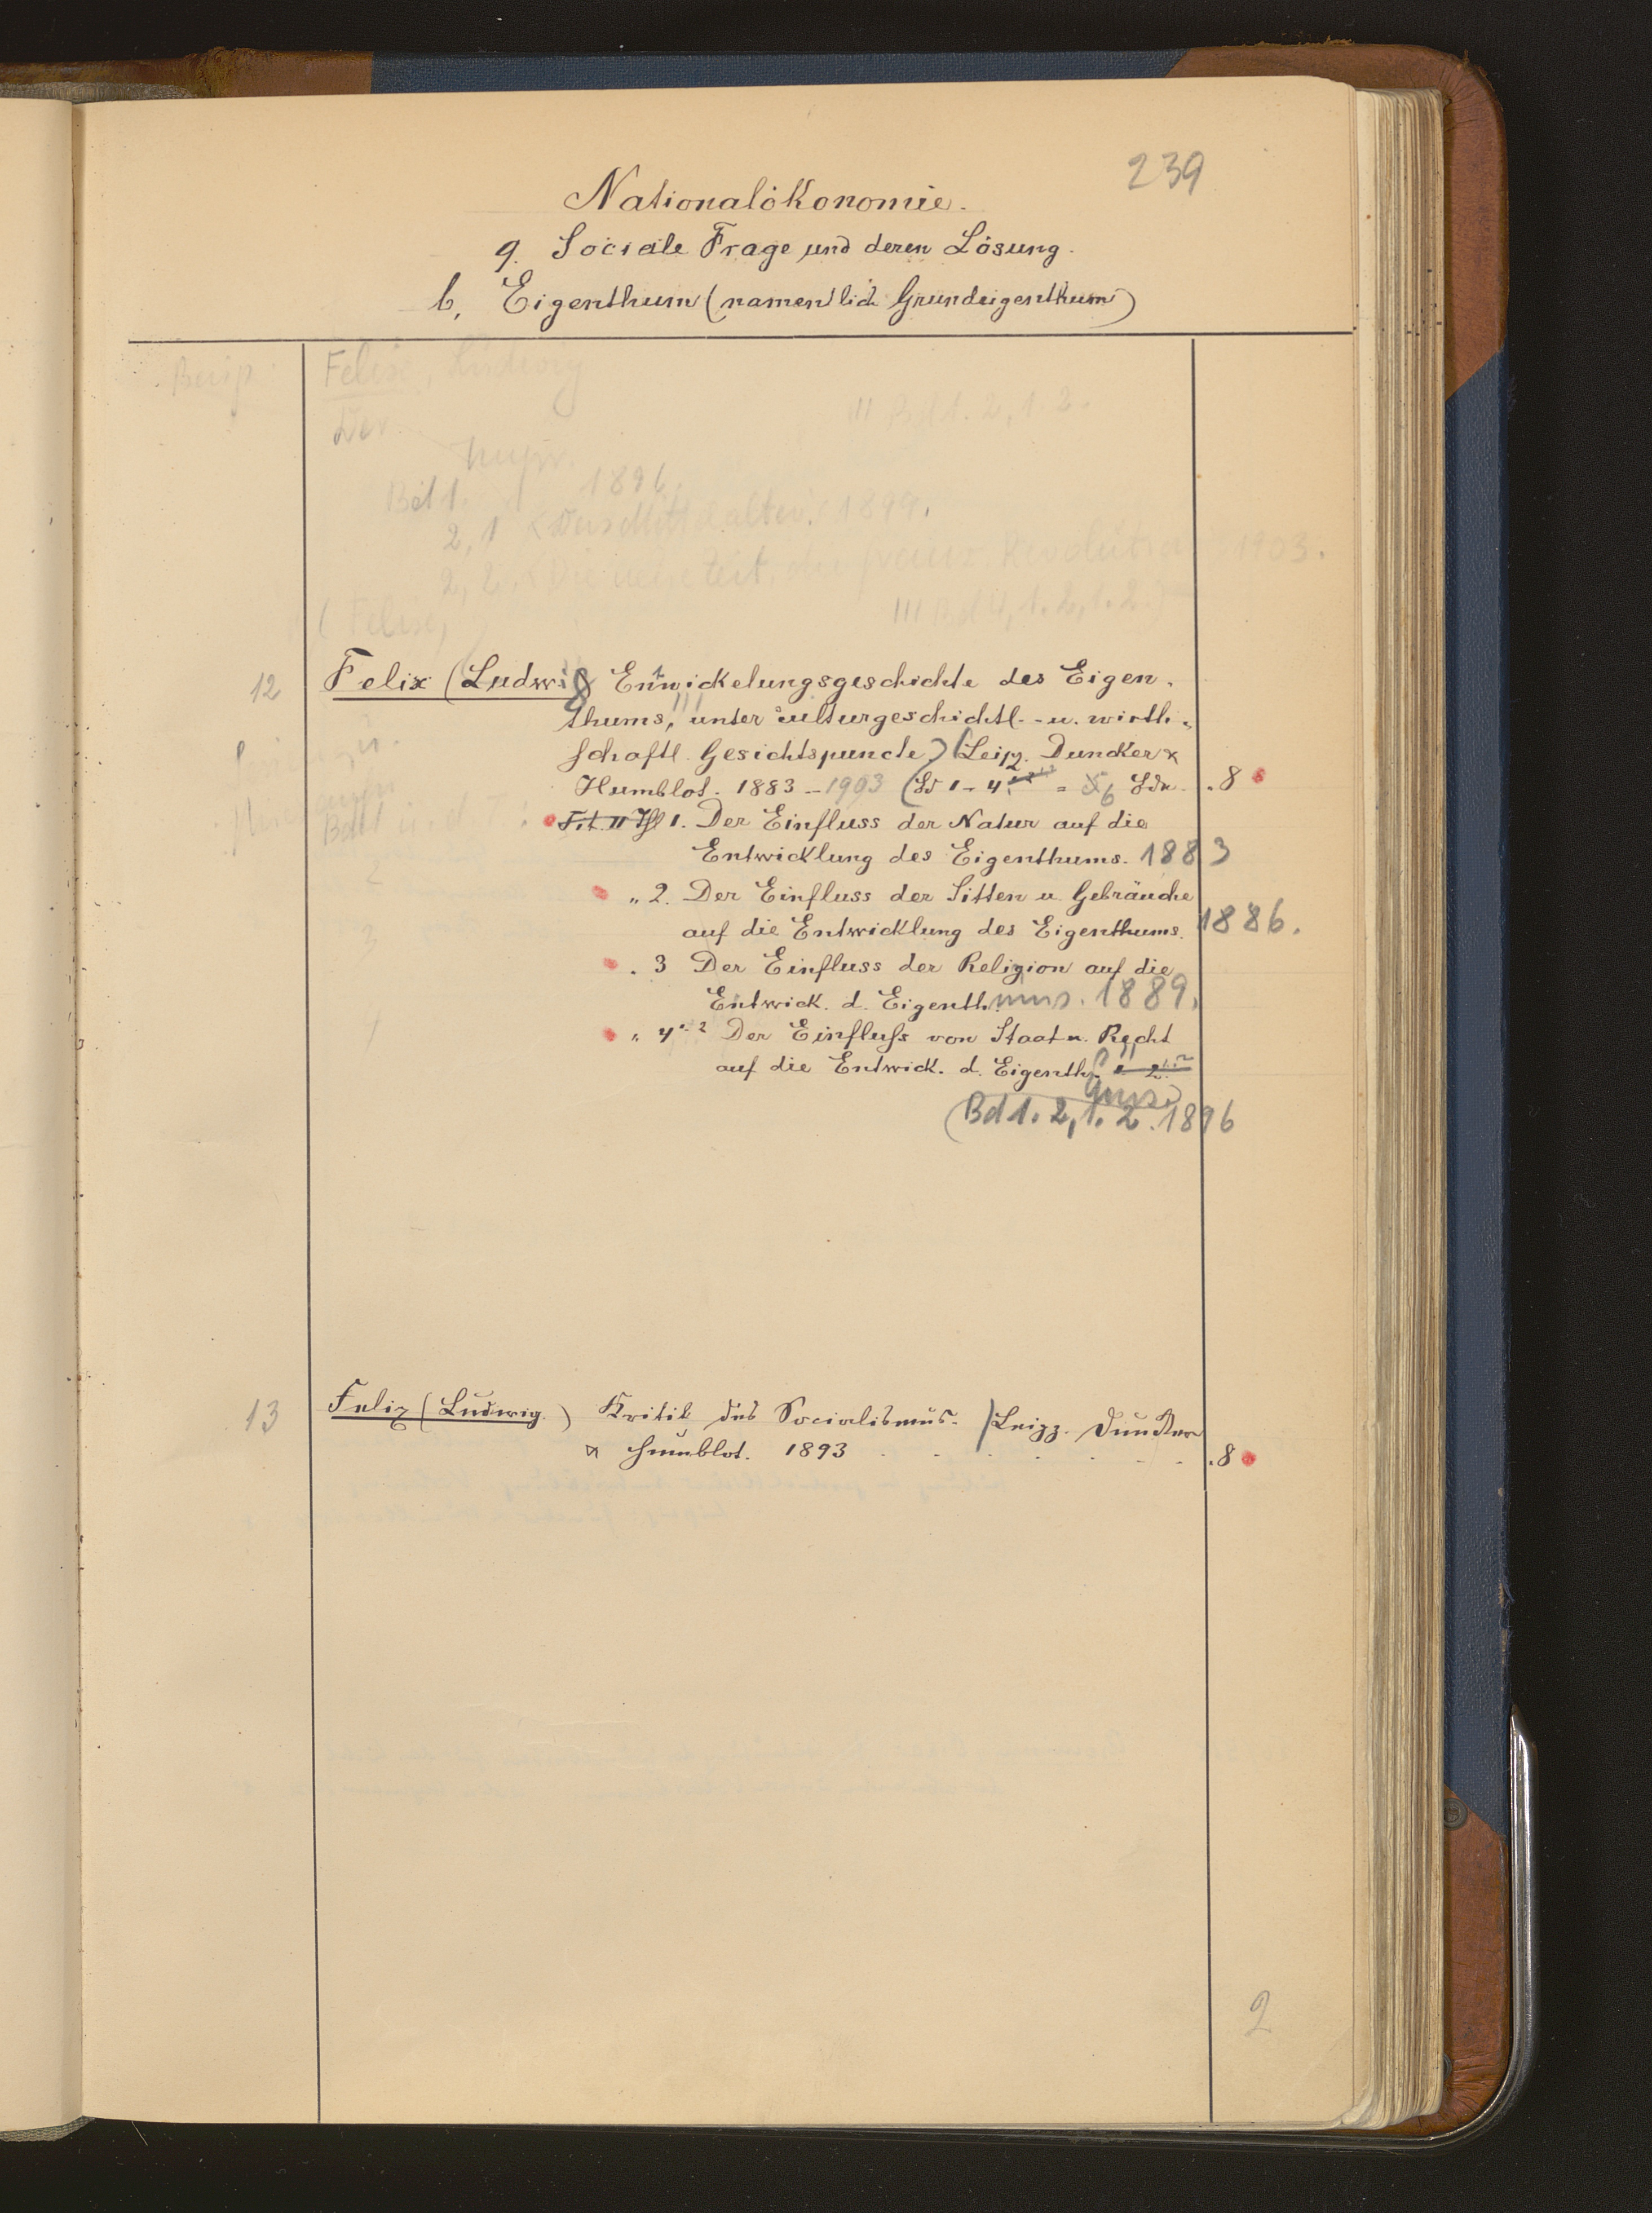 239
Nationalökonomie.
9. Sociale Frage und deren Lösung.
b, Eigenthum (namentlich Grundeigenthum)
Felix, Ludwig
Der
II Bd 1. 2, 1 2.
Bd 1. 1896.
2, 1 <Das Mittelalter.> 1899.
2, 2, <Die neue Zeit, die franz. Revolution 1903.
(Felix, III Bd 4, 1. 2, 1. 2.)
12 Felix (Ludwig) Entwickelungsgeschichte des Eigen-
thums, unter culturgeschichtl. - u. wirth-
schaftl. Gesichtspuncte) (Leipz. Duncker &
Humblot. 1883 - 1903 (Bd 1 - 4 = 6 Bde. . 8
Tit. II Thl 1. Der Einfluss der Natur auf die
Entwicklung des Eigenthums. 1883
„ 2. Der Einfluss der Sitten u. Gebräuche
auf die Entwicklung des Eigenthums. 1886.
. 3 Der Einfluss der Religion auf die
Entwick. d. Eigenthums. 1889.
„ 4 1-2 Der Einfluß von Staat u. Recht
auf die Entwick. d. Eigenthums.
(Bd 1. 2, 1. 2. 1896
13 Felix (Ludwig.) Kritik des Socialismus. / Leipz. Duncker
& Humblot. 1893 . . . . . . . 8
2